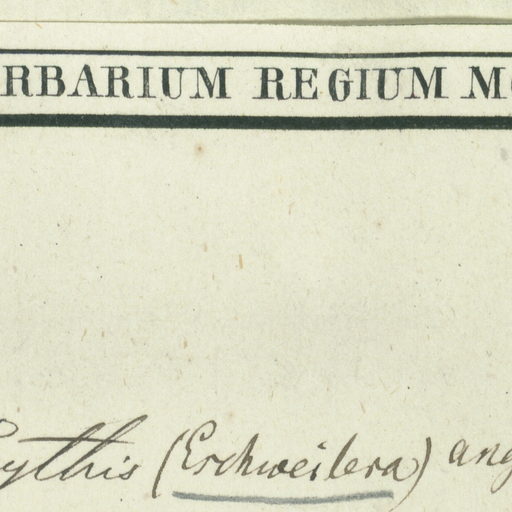 RBARIUM REGIUM M
cythis (Eschweilera) ang